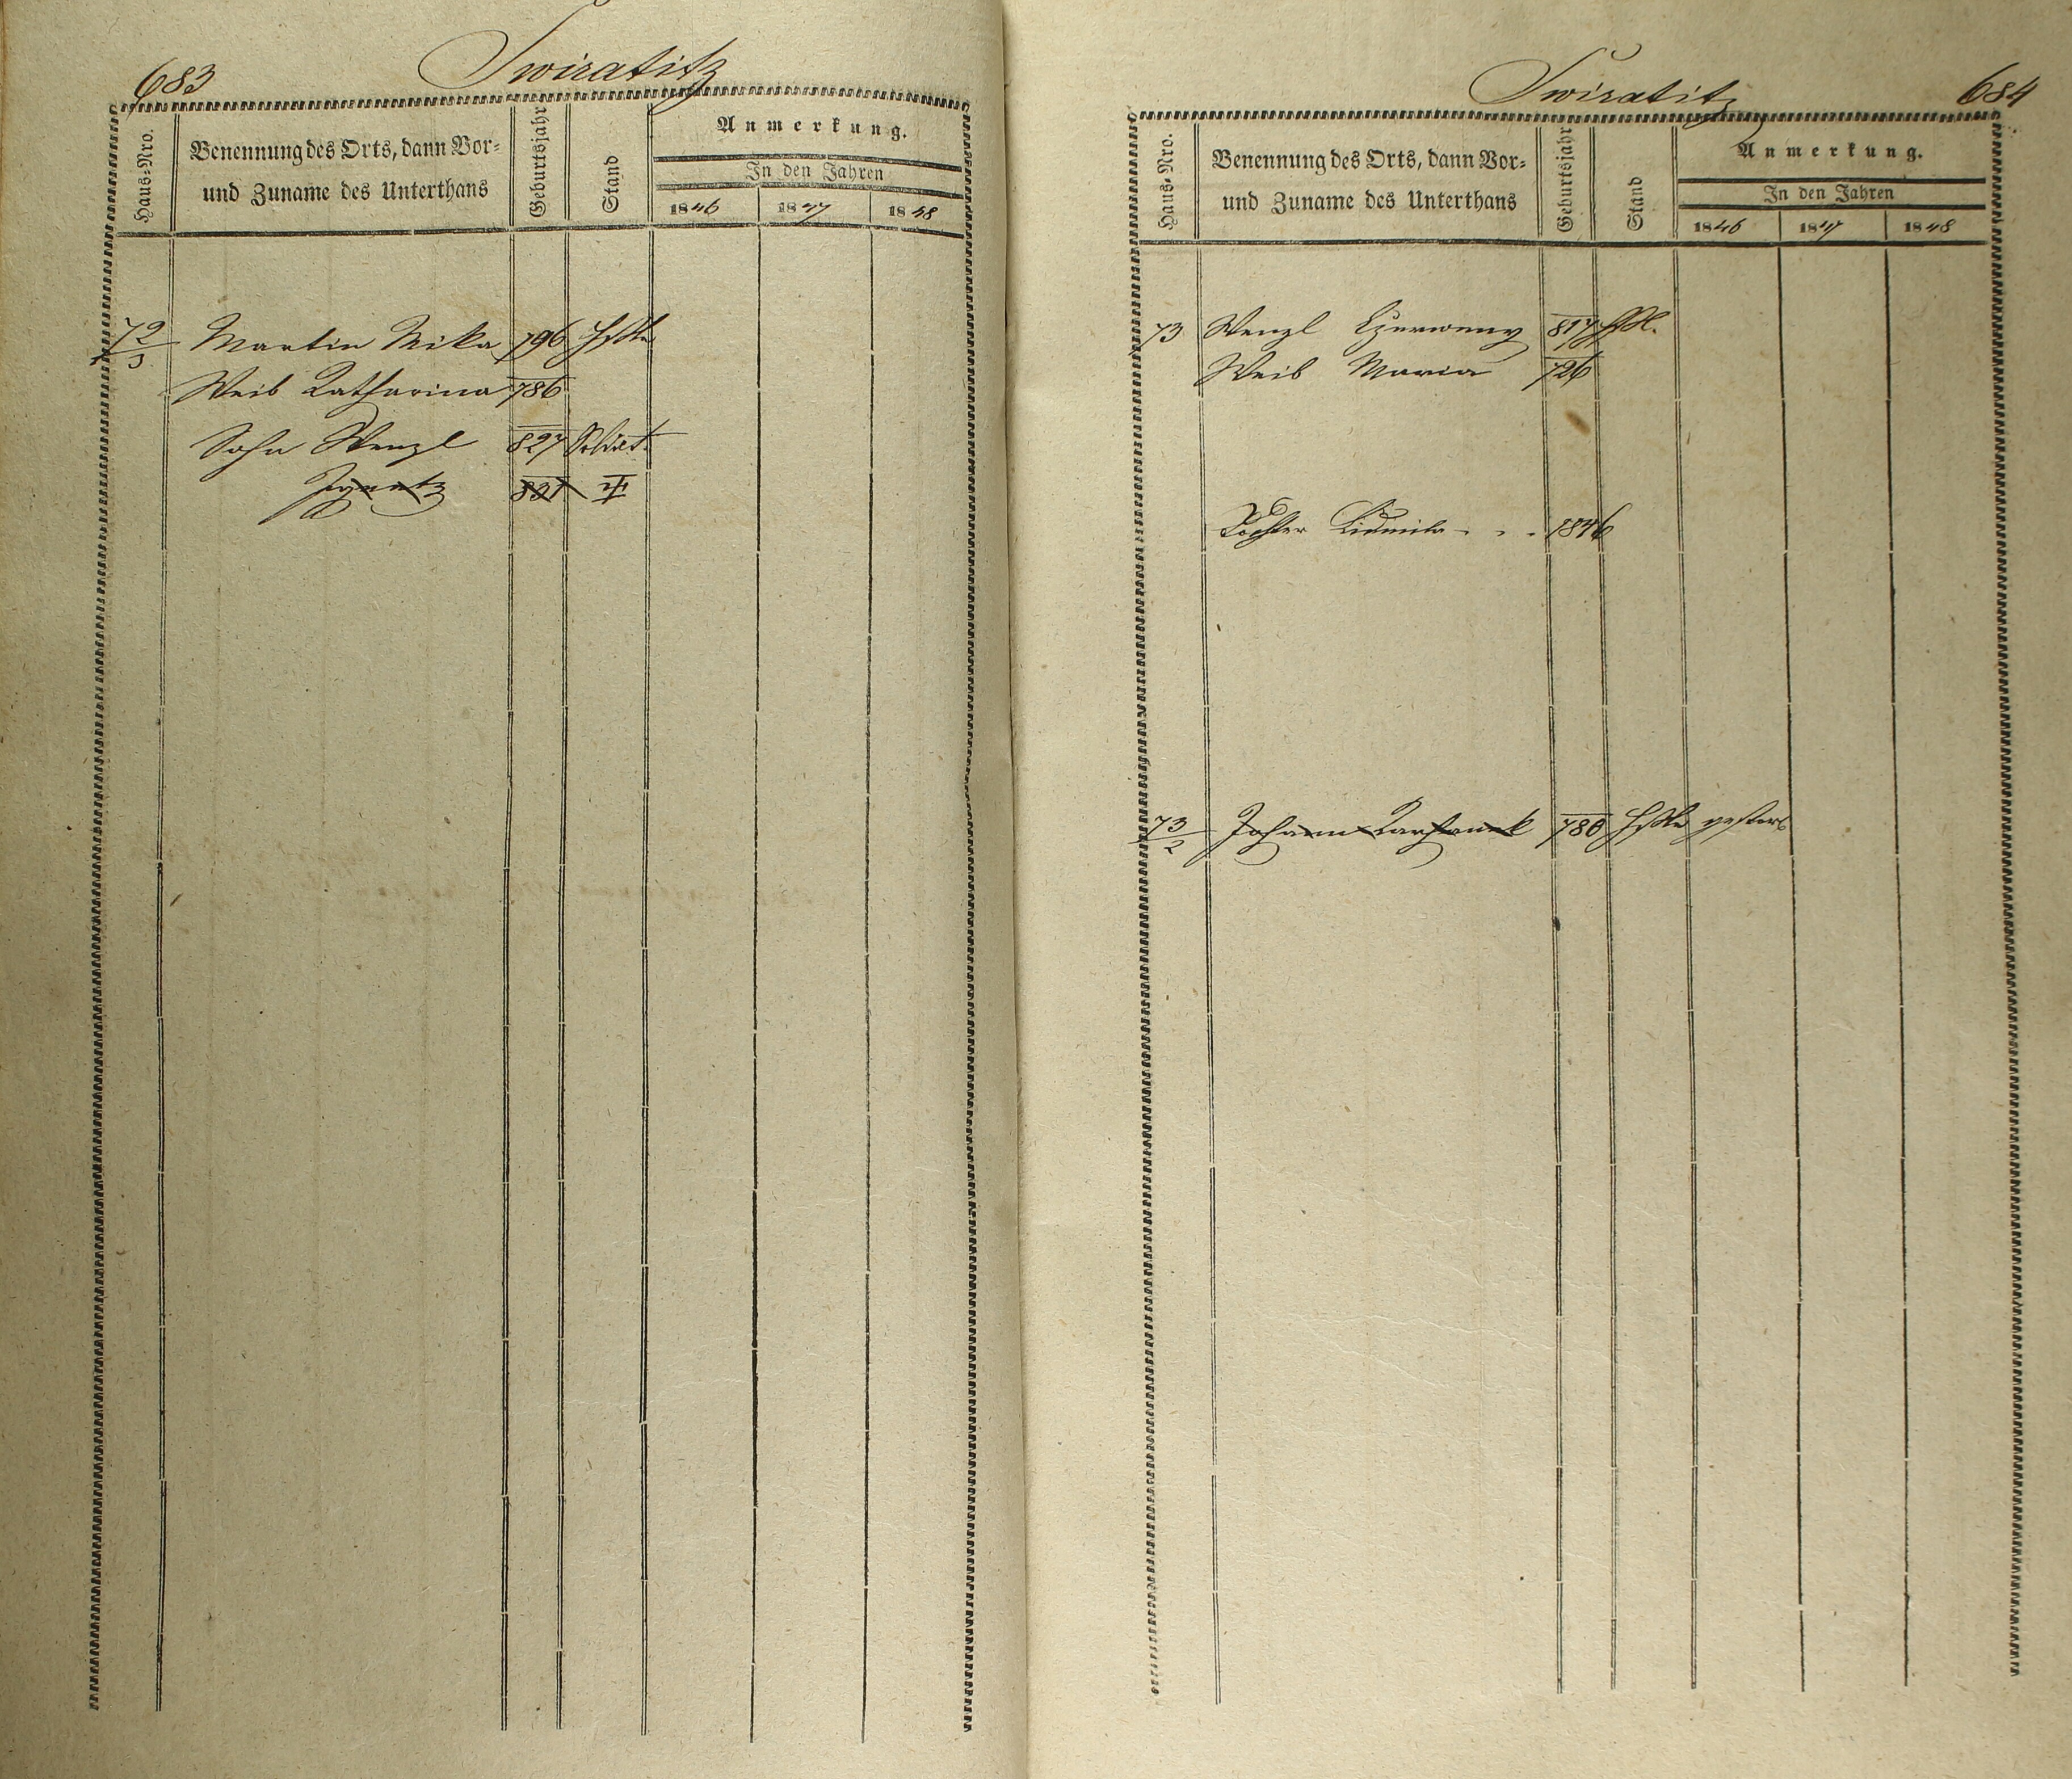 683
Swiratitz
Haus-Nro.
Benennung des Orts, dann Vor-
und Zuname des Unterthans
Geburtsjahr
Stand
Anmerkung.
In den Jahren
1846 1847 1848
72/3 Martin Mika 796
Weib Katharina 786
Sohn Wenzl 827 Soldat
Ignatz 831
Swiratitz
684
Haus-Nro.
Benennung des Orts, dann Vor-
und Zuname des Unterthans
Geburtsjahr
Stand
Anmerkung.
In den Jahren
1846 1847 1848
73 Wenzl Czerweny 817
Weib Maria 726
Tochter Ludmila - - - 1846
73/2 Johann 780 gestorb